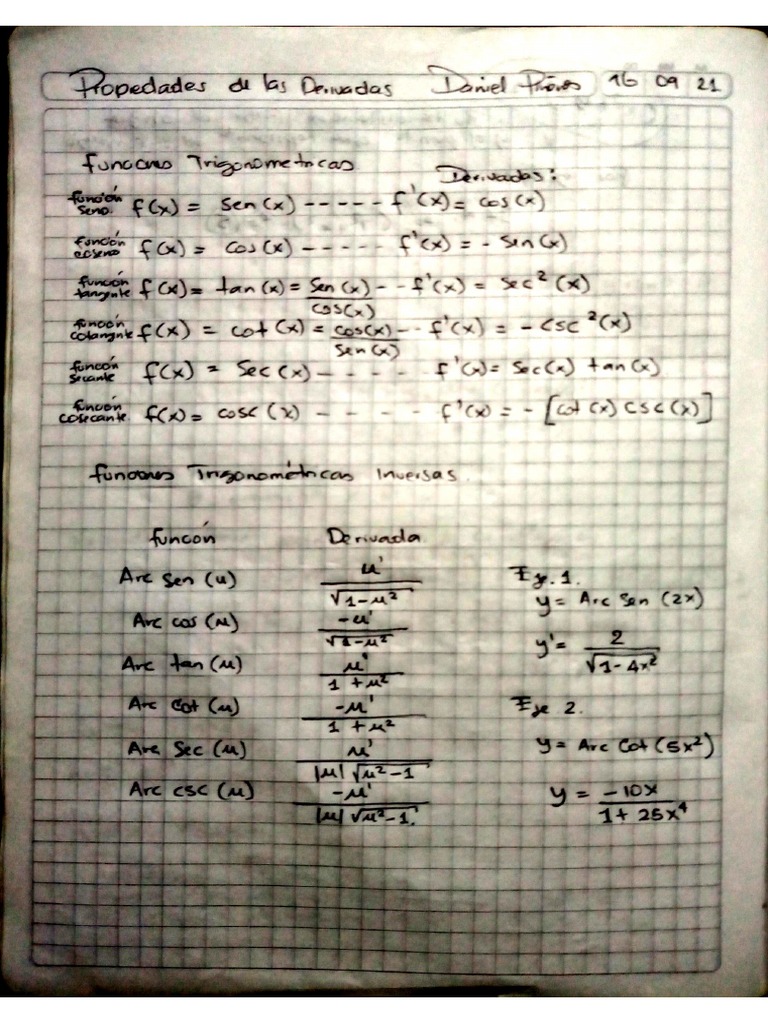 Propiedades de las Derivadas Daniel 16 09 21
funciones Trigonometricas
Derivadas:
función seno. f(x) = Sen(x) ----- f'(x) = cos(x)
función coseno f(x) = Cos(x) ----- f'(x) = - Sen(x)
función tangente f(x) = tan(x) = Sen(x)/cos(x) -- f'(x) = Sec²(x)
función cotangnte f(x) = cot(x) = cos(x)/Sen(x) -- f'(x) = - csc²(x)
función secante f(x) = Sec(x) - - - - f'(x) = Sec(x) tan(x)
función cosecante f(x) = cosc(x) - - - - f'(x) = - [cot(x) csc(x)]
funciones Trigonométricas Inversas.
función Derivada
Arc Sen (u) u'/√1-u² Eje. 1.
y = Arc Sen (2x)
Arc cos (u) -u'/√1-u²
y' = 2/√1-4x²
Arc tan (u) u'/1+u²
Arc Cot (u) -u'/1+u² Eje 2.
Arc Sec (u) u'/|u|√u²-1 y = Arc Cot (5x²)
Arc csc (u) -u'/|u|√u²-1 y = -10x/1+25x⁴